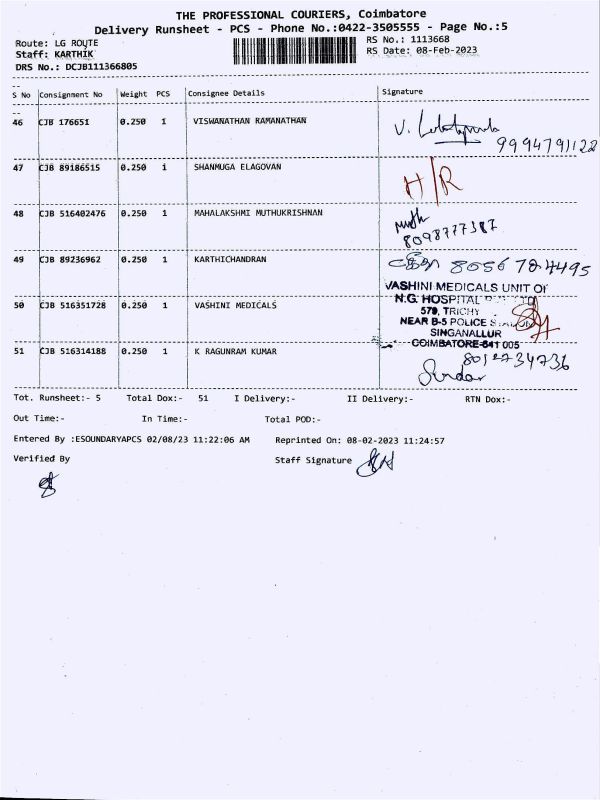 THE PROFESSIONAL COURIERS, Coimbatore
Delivery Runsheet - PCS - Phone No.:0422-3505555 - Page No.:5
Route: LG ROUTE
Staff: KARTHIK
DRS No.: DCJB111366805
RS No.: 1113668
RS Date: 08-Feb-2023
S No Consignment No Weight PCS Consignee Details Signature
46 CJB 176651 0.250 1 VISWANATHAN RAMANATHAN V. 9994791122
47 CJB 89186515 0.250 1 SHANMUGA ELAGOVAN H/R
48 CJB 516402476 0.250 1 MAHALAKSHMI MUTHUKRISHNAN
8098777387
49 CJB 89236962 0.250 1 KARTHICHANDRAN 8056784495
VASHINI MEDICALS UNIT OF
N.G. HOSPITAL
50 CJB 516351728 0.250 1 VASHINI MEDICALS 579, TRICHY
NEAR B-5 POLICE
SINGANALLUR
COIMBATORE-641 005
51 CJB 516314188 0.250 1 K RAGUNRAM KUMAR 8012734736
Sundar
Tot. Runsheet:- 5 Total Dox:- 51 I Delivery:- II Delivery:- RTN Dox:-
Out Time:- In Time:- Total POD:-
Entered By :ESOUNDARYAPCS 02/08/23 11:22:06 AM Reprinted On: 08-02-2023 11:24:57
Verified By Staff Signature